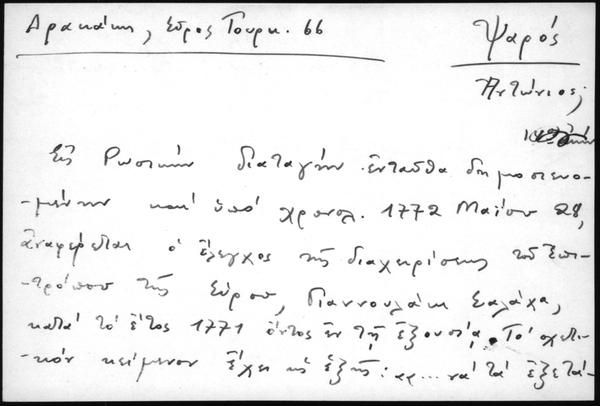 Δρακάκη, Σύρος Τουρκ. 66
Ψαρός
Ἀντώνιος;
Εἰς Ρωσικήν διαταγήν ἐνταῦθα δημοσιευο-
-μένην καί ὑπό χρονολ. 1772 Μαΐου 28,
ἀναφέρεται ὁ ἔλεγχος τῆς διαχειρίσεως τοῦ Ἐπι-
-τρόπου τῆς Σύρου, Γιαννουλάκη Σαλάχα,
κατά τό ἔτος 1771 ὄντος ἐν τῇ ἐξουσίᾳ. Τό σχετι-
-κόν κείμενον ἔχει ὡς ἑξῆς: ... νά τά ἐξετά-